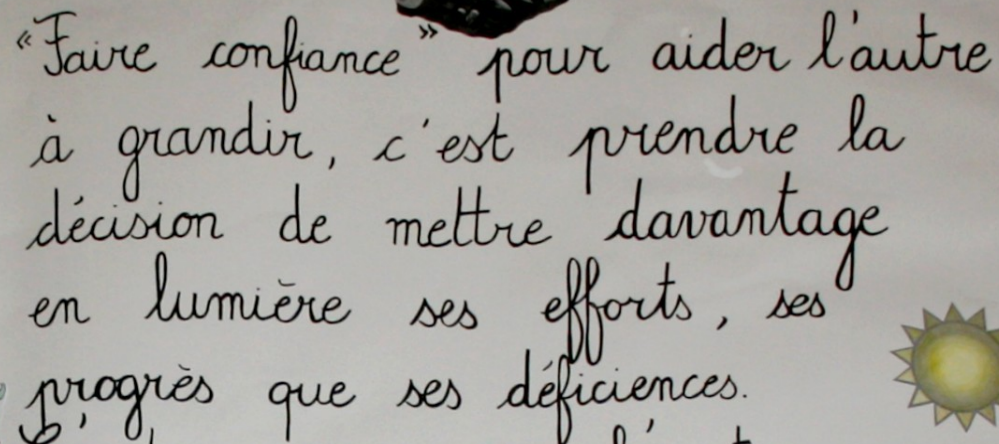 « Faire confiance » pour aider l'autre
à grandir, c'est prendre la
décision de mettre davantage
en lumière ses efforts, ses
progrès que ses déficiences.